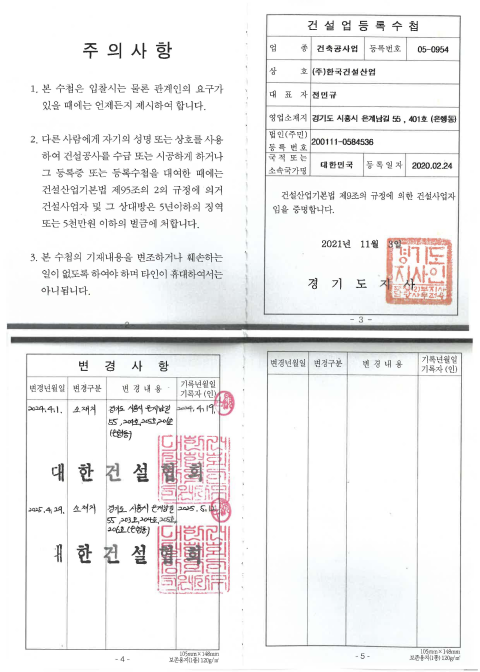 주 의 사 항
1. 본 수첩은 입찰시는 물론 관계인의 요구가
있을 때에는 언제든지 제시하여 합니다.
2. 다른 사람에게 자기의 성명 또는 상호를 사용
하여 건설공사를 수급 또는 시공하게 하거나
그 등록증 또는 등록수첩을 대여한 때에는
건설산업기본법 제95조의 2의 규정에 의거
건설사업자 및 그 상대방은 5년이하의 징역
또는 5천만원 이하의 벌금에 처합니다.
3. 본 수첩의 기재내용을 변조하거나 훼손하는
일이 없도록 하여야 하며 타인이 휴대하여서는
아니됩니다.
건 설 업 등 록 수 첩
업 종 건축공사업 등록번호 05-0954
상 호 (주)한국건설산업
대 표 자 전민규
영업소재지 경기도 시흥시 은계남길 55 , 401호 (은행동)
법인(주민)
등 록 번 호 200111-0584536
국 적 또 는
소속국가명 대한민국 등 록 일 자 2020.02.24
건설산업기본법 제9조의 규정에 의한 건설사업자
임을 증명합니다.
2021년 11월 3일
경 기 도 지 사
- 3 -
변 경 사 항
변경년월일 변경구분 변 경 내 용 기록년월일
기록자 (인)
2024.4.1. 소재지 경기도 시흥시 은계남길 2024.4.19.
(은행동)
대 한 건 설 협 회
2025.4.29. 소재지 경기도 시흥시 은계남길
(은행동)
대 한 건 설 협 회
105mm×148mm
- 4 - 보존용지(1종) 120g/㎡
변경년월일 변경구분 변 경 내 용 기록년월일
기록자 (인)
105mm×148mm
- 5 - 보존용지(1종) 120g/㎡